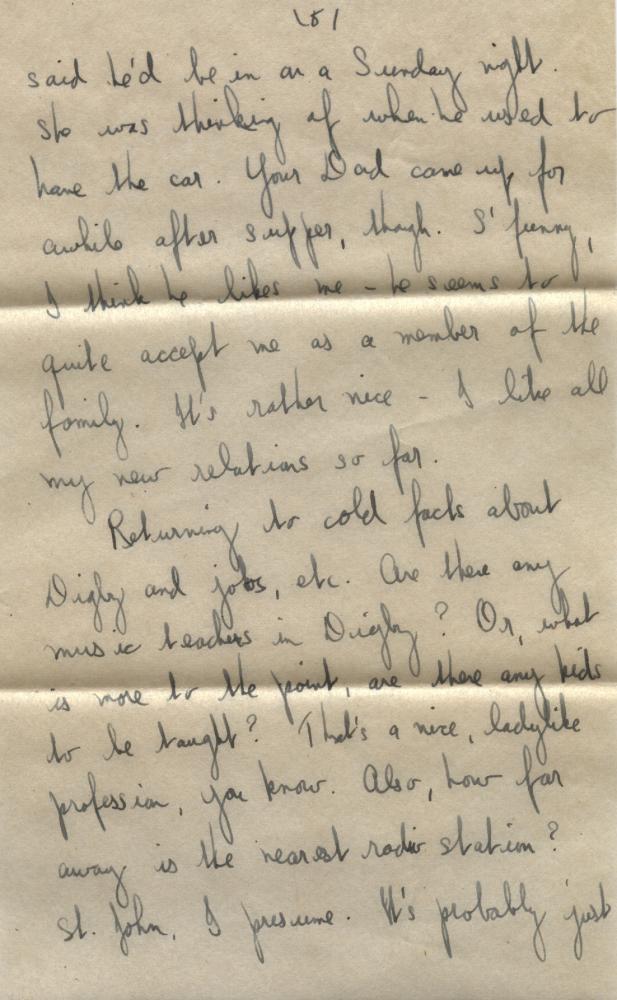 \5/
said he'd be in on a Sunday night.
She was thinking of when he used to
have the car. Your Dad came up for
awhile after supper, though. S'funny,
I think he likes me - he seems to
quite accept me as a member of the
family. It's rather nice - I like all
my new relations so far.
Returning to cold facts about
Digby and jobs, etc. Are there any
music teachers in Digby? Or, what
is more to the point, are there any kids
to be taught? That's a nice, ladylike
profession, you know. Also, how far
away is the nearest radio station?
St. John, I presume. It's probably just